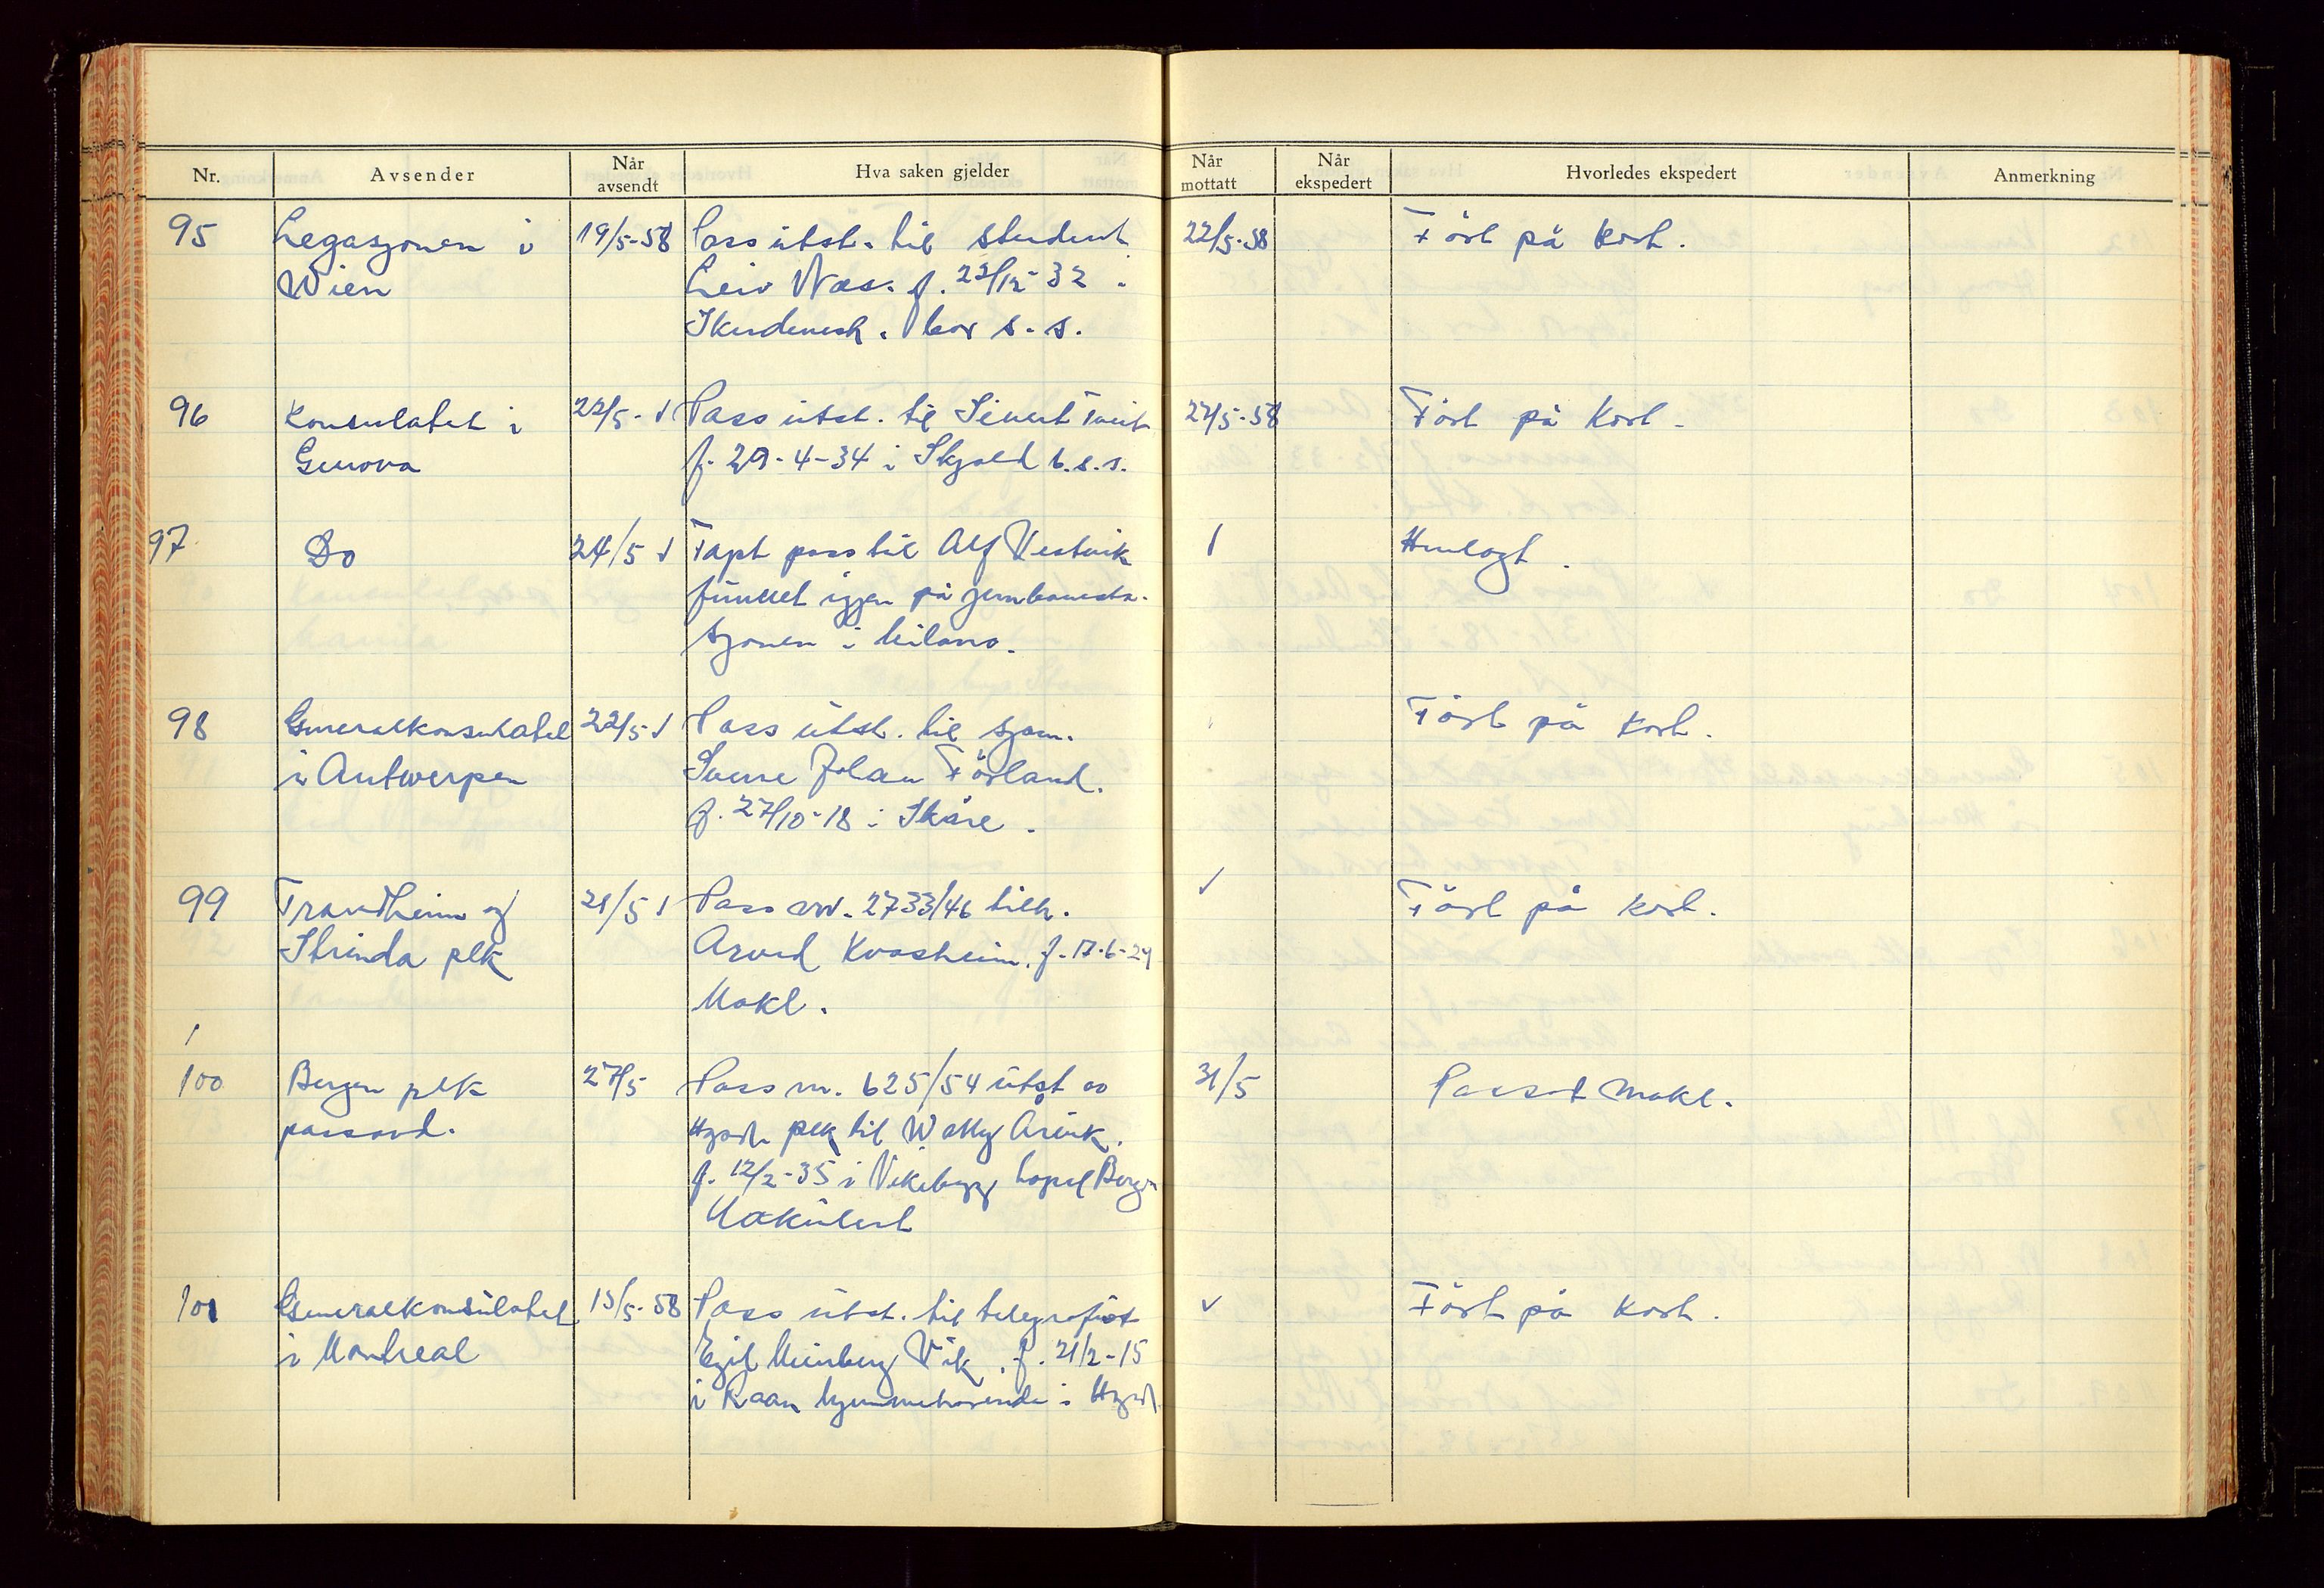 Nr.
Avsender
Når avsendt
Hva saken gjelder
Når mottatt
Når ekspedert
Hvorledes ekspedert
Anmerkning
95 Legasjonen i 19/5-58 Pass utst. til student 22/5-58 Ført på kort.
Wien Leiv Næs. f. 22/12-32
Skudenesh. bor s.s.
96 Konsulatet i 22/5- Pass utst. til Sivert Tveit 27/5-58 Ført på kort.
Genova f. 29-4-34 i Skjold b.s.s.
97 Do 24/5 Tapt pass til Alf Vestvik Henlagt.
funnet igjen på jernbanesta-
sjonen i Milano.
98 Generalkonsulatet 22/5- Pass utst. til sjøm. Ført på kort.
i Antwerpen Sverre Johan Førland.
f. 27/10-18 i Skåre.
99 Trondheim og 21/5 Pass nr. 2733/46 tilh. Ført på kort.
Strinda plk Arvid Kvasheim. f. 17-6-29
Makl.
100 Bergen plk 27/5 Pass nr. 625/54 utst av 31/5 Passet makl.
passavd. Hgsd. plk til Årvik.
f. 12/2-35 i Vikebygd Bergen
Makulert
101 Generalkonsulatet 15/5-58 Pass utst. til telegrafist ✓ Ført på kort.
i Montreal Egil Meinberg Vik, f. 21/2-15
i hjemmehørende i Hgsd.